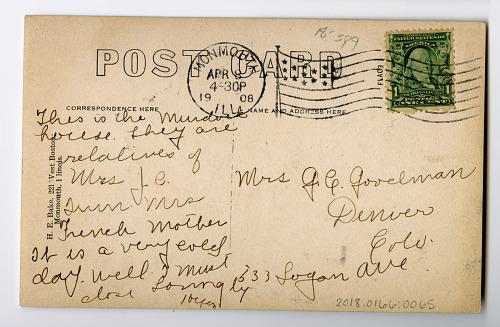 18-589
POST CARD
MONMOUTH
APR 9
4-30P
1908
ILL.
CORRESPONDENCE HERE
NAME AND ADDRESS HERE
H. E. Bake, 221 West Boston
Monmouth, Illinois.
This is the Murdock
house. They are
relatives of
Mrs J.C.
Dunn Mrs
French Mother
It is a very cold
day. well I must
close Lovingly
Mrs J. C. Goodman
Denver
Colo.
533 Logan Ave.
2018.0166.0065